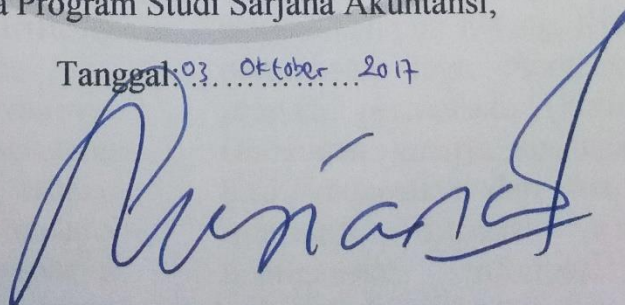 Program Studi Sarjana Akuntansi,
Tanggal: 03 Oktober 2017